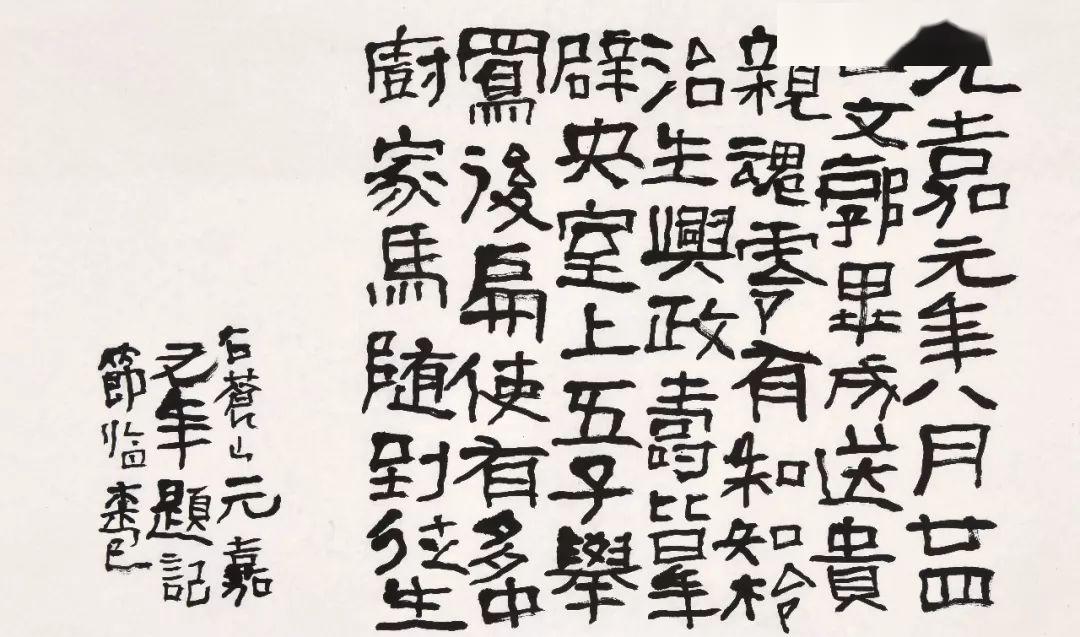 元嘉元年八月廿四
文郭畢成送貴
親魂零有知知柃
治生興政壽皆年
辟央室上五子舉
駡後扁使有多中
廚家馬隨到往生
右蒼山元嘉
年題記
節临